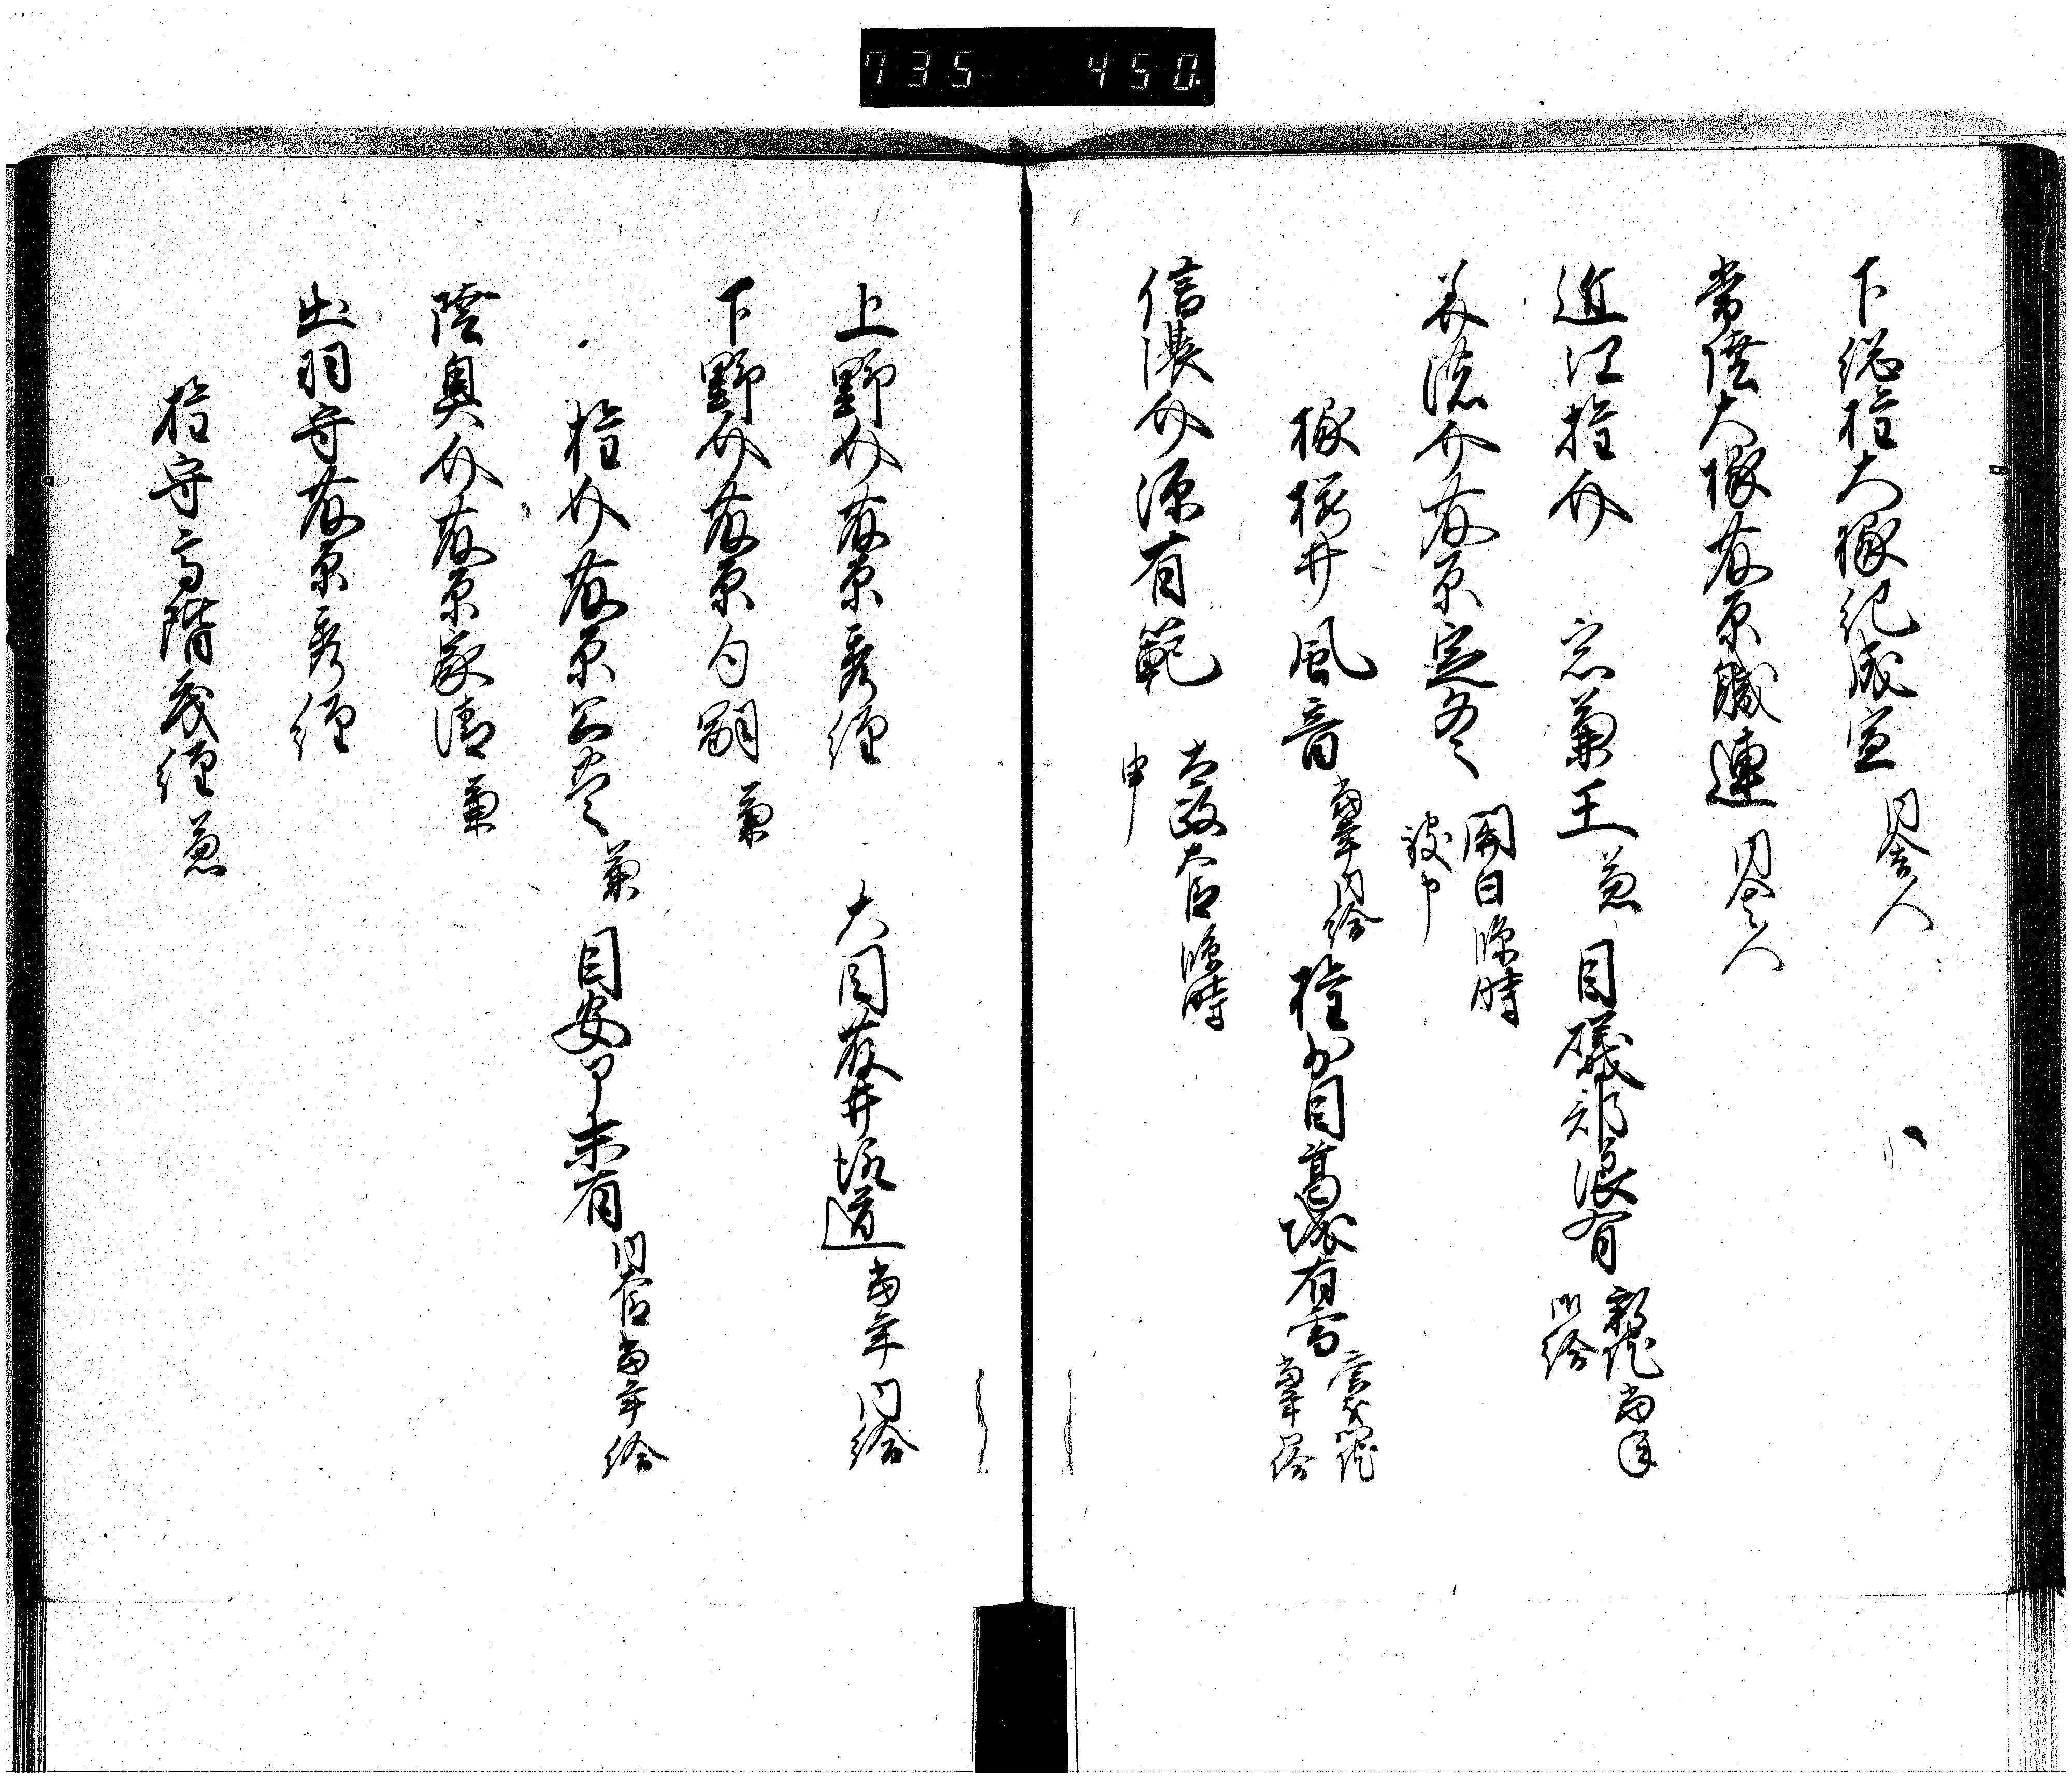 735 450
下総権大掾紀成宣 内舎人
常陸大掾藤原職連 内舎人
近江権介 宗兼王 兼 目礒部浪有 新院当年御給
美濃介藤原定冬 関白臨時被申
掾桜井風音 当年内給 権少目葛城有雪 当年給
信濃介源有範 太政大臣臨時申
上野介藤原秀経 大目藤井坂道 当年内給
下野介藤原勾嗣 兼
権介藤原公冬 兼 目安了末有 内大臣当年給
陸奥介藤原家清 兼
出羽守藤原秀経
権守高階茂経 兼